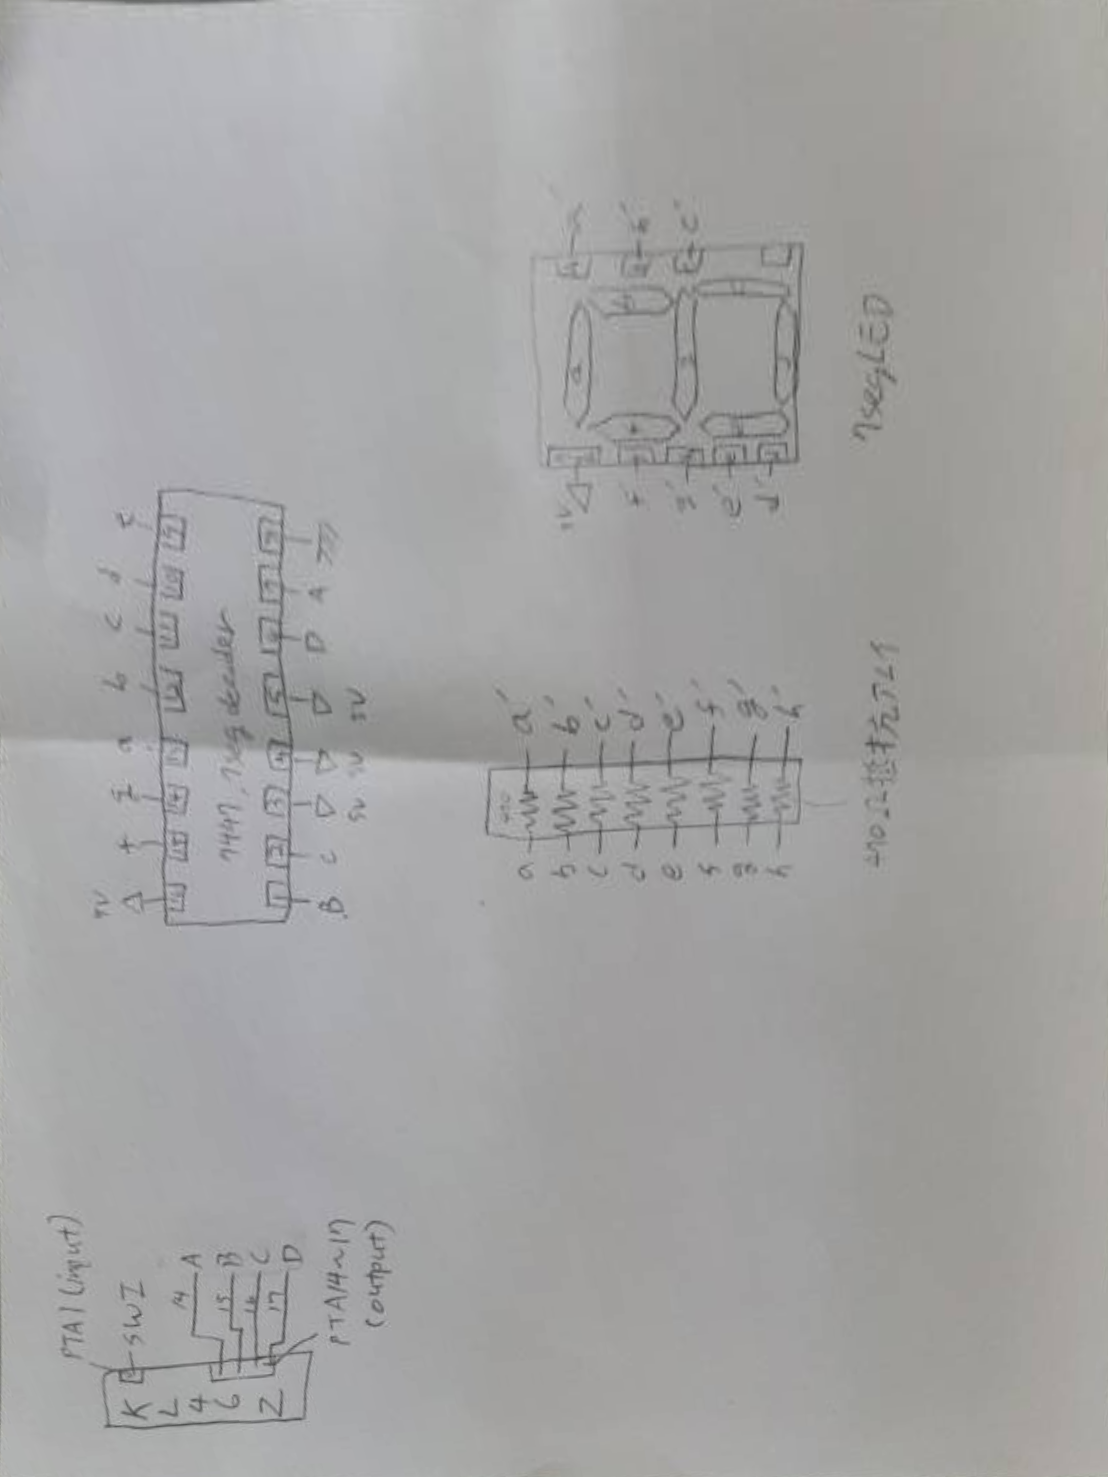 PTA1 (input)
SW1
K
L
4
6
Z
14 A
15 B
16 C
17 D
PTA14~17
(output)
5V
f
g
a
b
c
d
e
16 15 14 13 12 11 10 9
7447, 7seg decoder
1 2 3 4 5 6 7 8
B C D A
5V 5V 5V
470
a a'
b b'
c c'
d d'
e e'
f f'
g g'
h h'
470Ω抵抗アレイ
5V
f'
g'
e'
d'
a'
b'
c'
a
7segLED